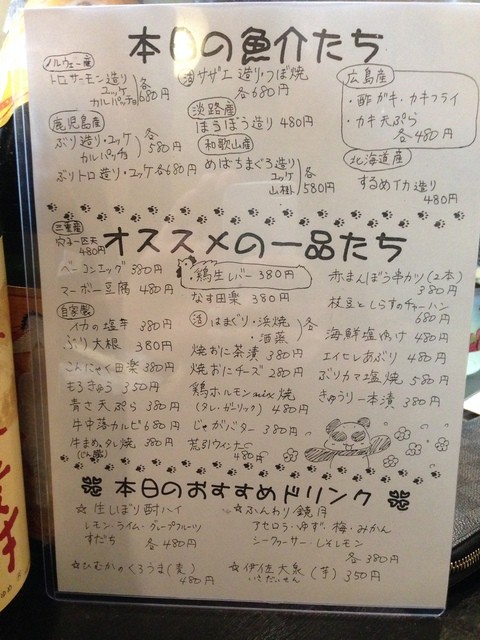 本日の魚介たち
ノルウェー産
トロサーモン造り
ユッケ
カルパッチョ
各680円
鹿児島産
ぶり造り・ユッケ
カルパッチョ
各580円
ぶりトロ造り・ユッケ 各680円
活 サザエ造り・つぼ焼
各680円
淡路産
ほうぼう造り 480円
和歌山産
めばちまぐろ造り
ユッケ
山掛
各580円
広島産
・酢ガキ・カキフライ
・カキ天ぷら
各480円
北海道産
するめイカ造り
480円
三重産
穴子一匹天
480円
オススメの一品たち
ベーコンエッグ 380円
マーボー豆腐 480円
自家製
イカの塩辛 380円
ぶり大根 380円
こんにゃく田楽 380円
もろきゅう 350円
青さ天ぷら 380円
牛中落カルビ 680円
牛まめタレ焼 380円
(じん臓)
・鶏生レバー 380円
なす田楽 380円
活 はまぐり・浜焼
・酒蒸
各
焼おに茶漬 380円
焼おにチーズ 280円
鶏ホルモンmix焼
(タレ・ガーリック) 480円
じゃがバター 380円
荒引ウインナー
480円
赤まんぼう串カツ(2本)
380円
枝豆としらすのチャーハン
680円
海鮮塩やけ 480円
エイヒレあぶり 480円
ぶりカマ塩焼 580円
きゅうり一本漬 380円
本日のおすすめドリンク
☆生しぼり酎ハイ
レモン・ライム・グレープフルーツ
すだち 各480円
☆ひむかのくろうま(麦)
480円
☆ふんわり鏡月
アセロラ・ゆず・梅・みかん
シークヮーサー・しそレモン
各380円
☆伊佐大泉(芋) 350円
いさだいせん